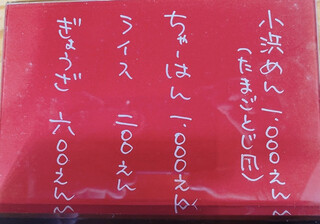 小浜めん 一、000えん〜
(たまごとじ風)
ちゃーはん 一、000えん〜
ライス 二00えん
ぎょうざ 六00えん〜